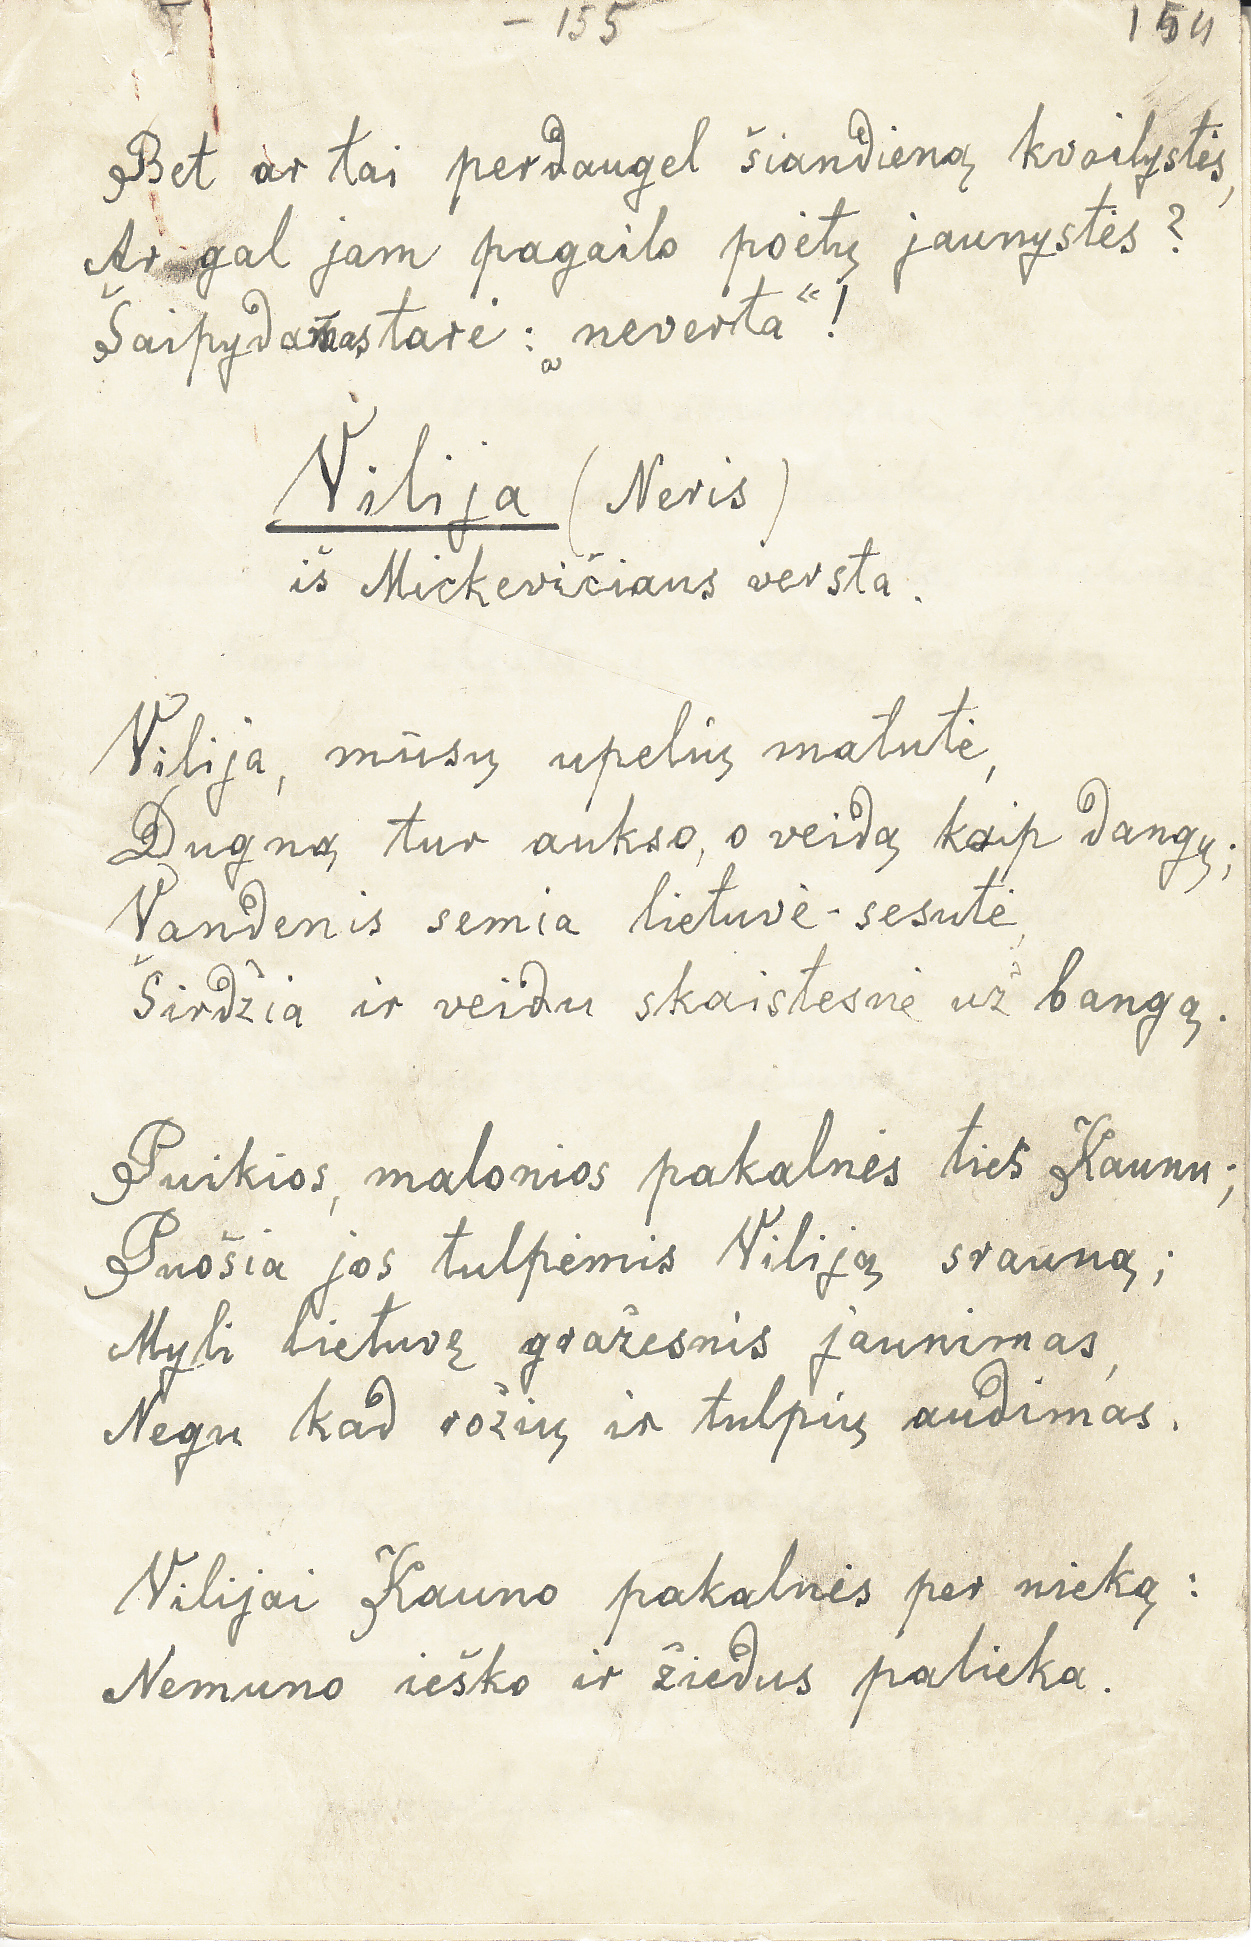 - 155
154
Bet ar tai perdaugel šiandieną kvailystės,
Ar gal jam pagailo poėtų jaunystės?
Šaipydamas tarė: „neverta“!
Vilija (Neris)
iš Mickevičiaus versta.
Vilija, mūsų upelių matutė,
Dugną tur aukso, o veidą kaip dangų;
Vandenis semia lietuvė-sesutė,
Širdžia ir veidu skaistesnė už bangą.
Puikios, malonios pakalnės ties Kaunu;
Puošia jos tulpėmis Viliją srauną;
Myli lietuvę gražesnis jaunimas,
Negu kad rožių ir tulpių audimas.
Vilijai Kauno pakalnės per nieką:
Nemuno ieško ir žiedus palieka.